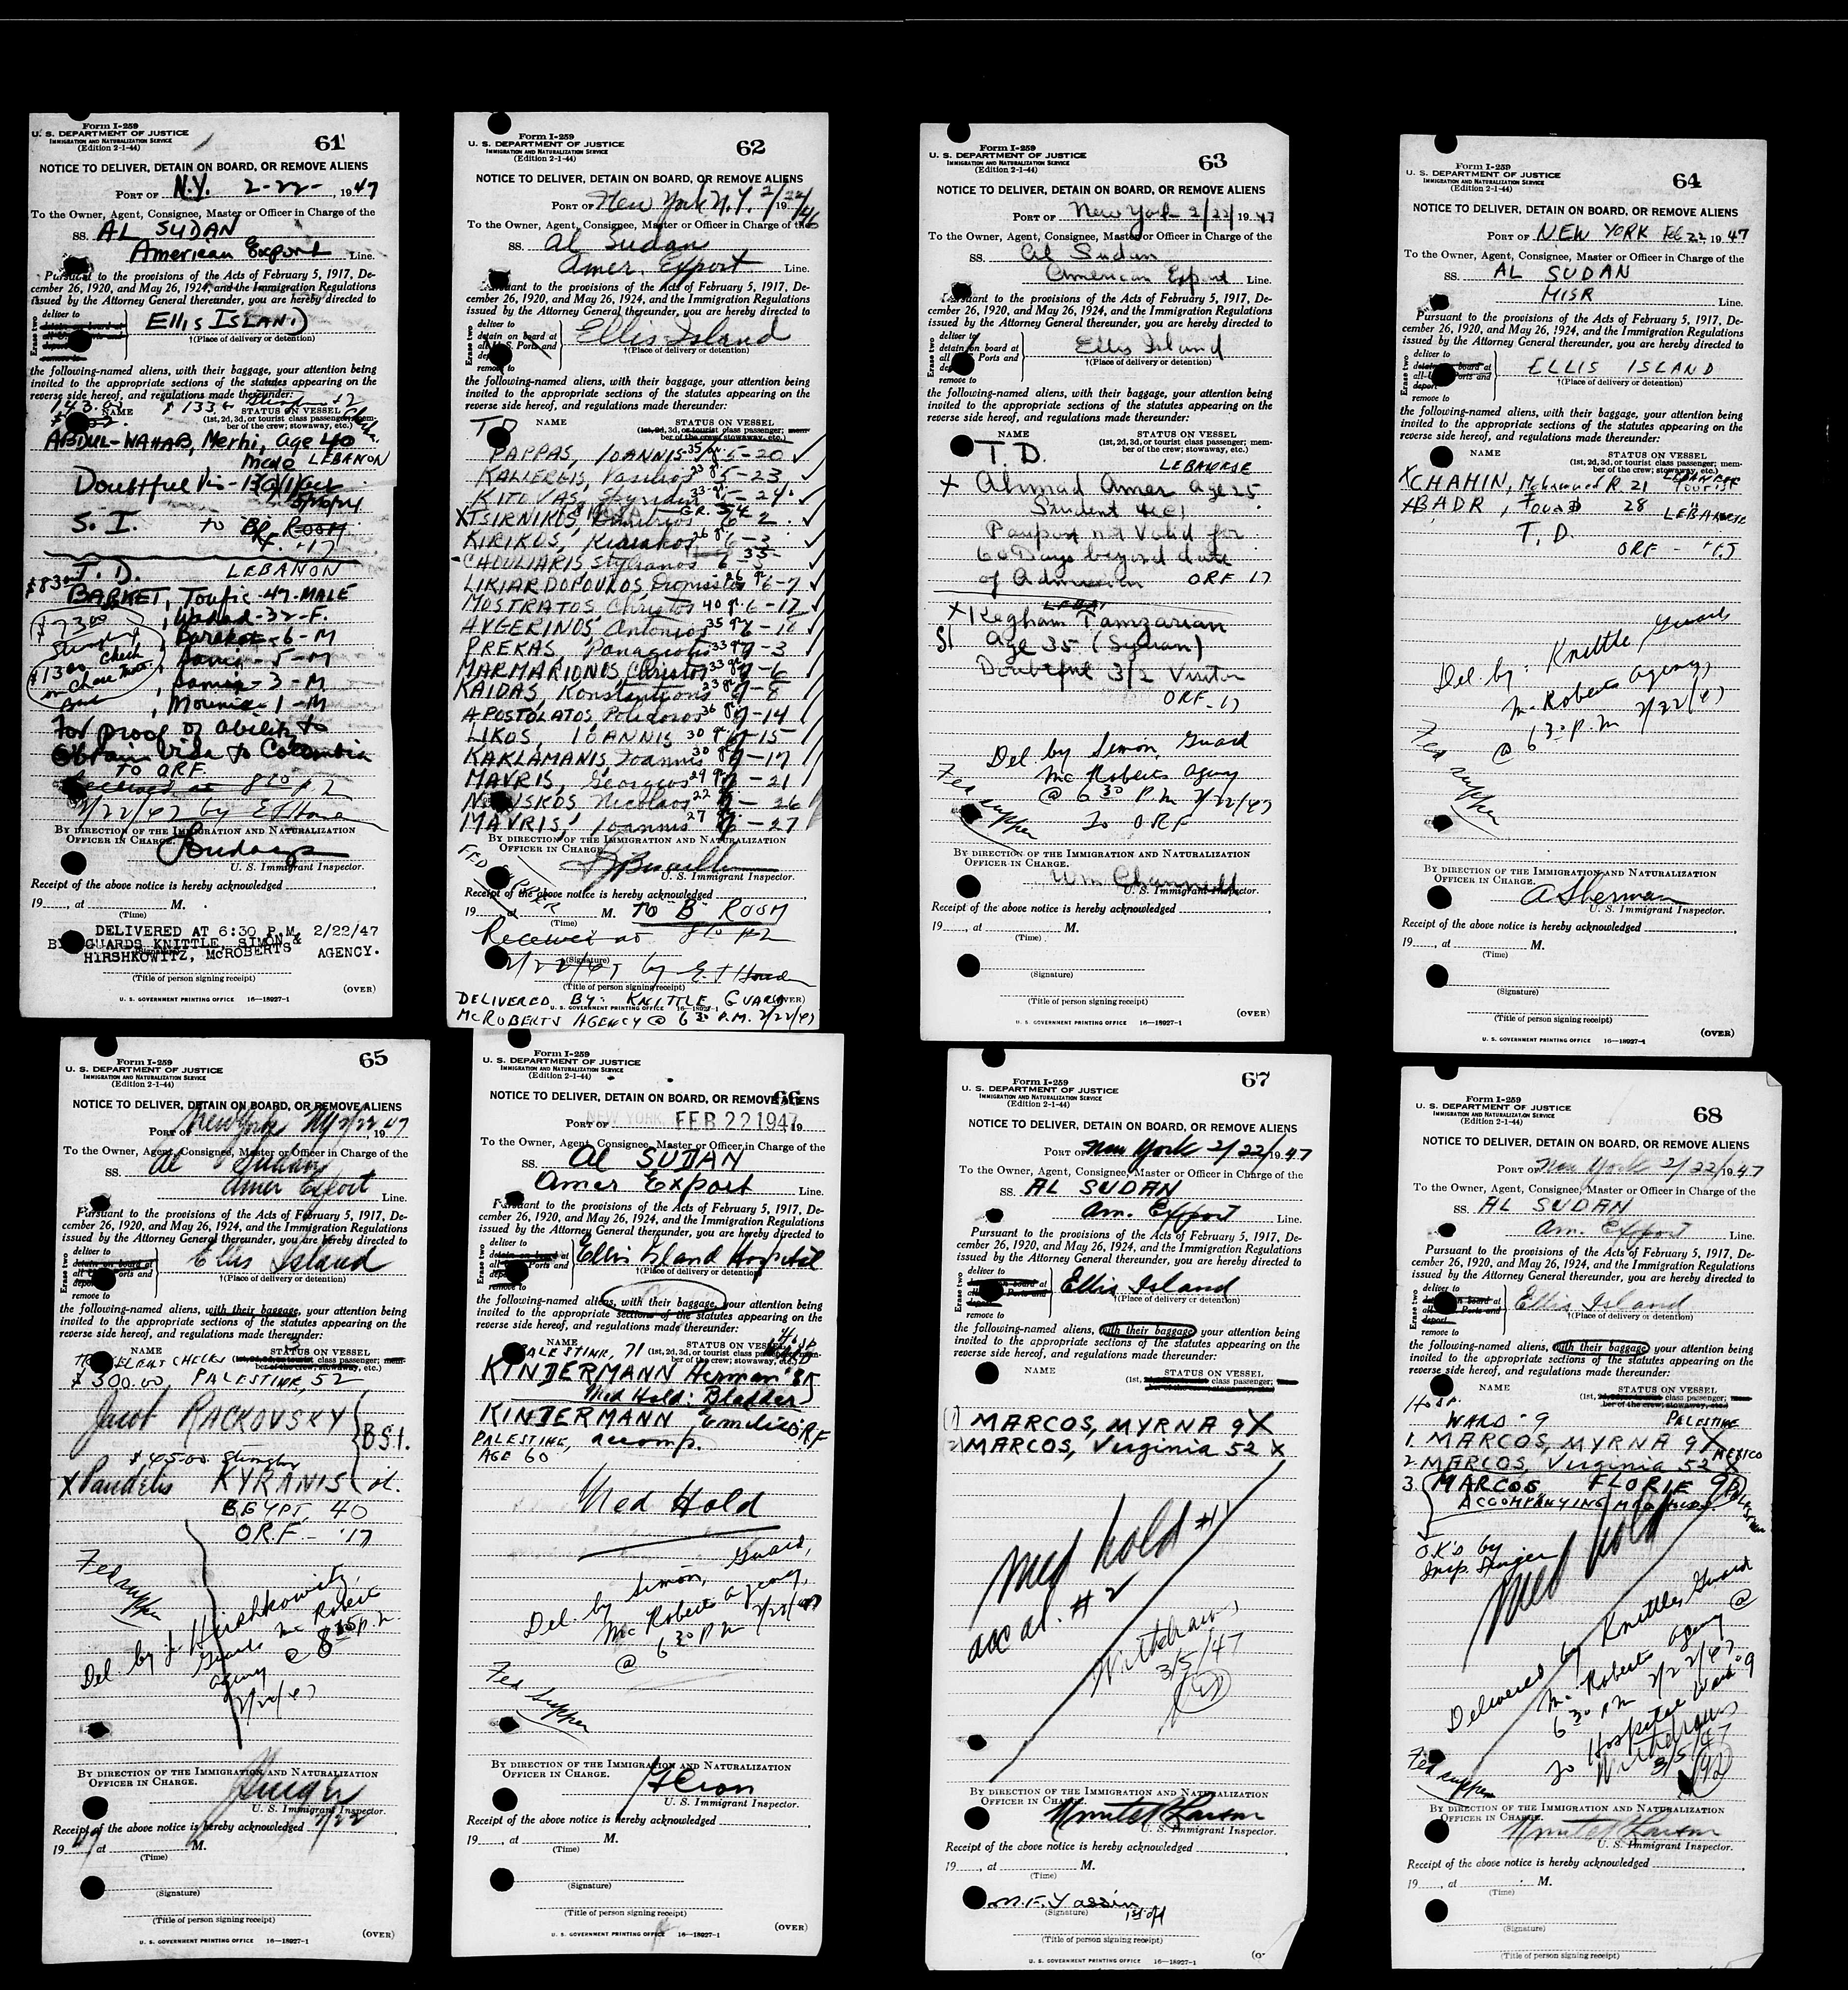 Form I-259
U. S. DEPARTMENT OF JUSTICE
IMMIGRATION AND NATURALIZATION SERVICE
(Edition 2-1-44)
61
NOTICE TO DELIVER, DETAIN ON BOARD, OR REMOVE ALIENS
PORT OF N.Y. 2-22- , 1947
To the Owner, Agent, Consignee, Master or Officer in Charge of the
SS. AL SUDAN
American Export Line.
Pursuant to the provisions of the Acts of February 5, 1917, De-
cember 26, 1920, and May 26, 1924, and the Immigration Regulations
issued by the Attorney General thereunder, you are hereby directed to
Erase two
deliver to
ELLIS ISLAND
†(Place of delivery or detention)
the following-named aliens, with their baggage, your attention being
invited to the appropriate sections of the statutes appearing on the
reverse side hereof, and regulations made thereunder:
NAME STATUS ON VESSEL
ABDUL-WAHAB, Merhi, age 40
male LEBANON
Doubtful
S. I. to ROOM
T. D. LEBANON
$83.00 BARKET, Toufic-47-MALE
$73.00 -32-F.
Barakat-6-M
-5-M
Check
-3-M
Mounir-1-M
For proof of ability to
obtain visa to Columbia
TO ORF.
Received at 8 10
2/22/47 by
BY DIRECTION OF THE IMMIGRATION AND NATURALIZATION
OFFICER IN CHARGE.
U. S. Immigrant Inspector.
Receipt of the above notice is hereby acknowledged
19 , at M.
(Time)
DELIVERED AT 6:30 P.M. 2/22/47
BY GUARDS KNITTLE, SIMON &
HIRSHKOWITZ, McROBERTS AGENCY.
(Title of person signing receipt)
(OVER)
U. S. GOVERNMENT PRINTING OFFICE 16—18927-1
Form I-259
U. S. DEPARTMENT OF JUSTICE
IMMIGRATION AND NATURALIZATION SERVICE
(Edition 2-1-44)
62
NOTICE TO DELIVER, DETAIN ON BOARD, OR REMOVE ALIENS
PORT OF New York N.Y. 2/22/46
To the Owner, Agent, Consignee, Master or Officer in Charge of the
SS. Al Sudan
Amer. Export Line.
Pursuant to the provisions of the Acts of February 5, 1917, De-
cember 26, 1920, and May 26, 1924, and the Immigration Regulations
issued by the Attorney General thereunder, you are hereby directed to
Erase two
deliver to
detain on board at
Ellis Island
†(Place of delivery or detention)
remove to
the following-named aliens, with their baggage, your attention being
invited to the appropriate sections of the statutes appearing on the
reverse side hereof, and regulations made thereunder:
TD
NAME STATUS ON VESSEL
(1st, 2d, 3d, or tourist class passenger; mem-
ber of the crew; stowaway, etc.)
PAPPAS, IOANNIS 35 gr 5-20
KALIERGIS, Vasilios 23 gr 5-23
KITOVAS, Spyridon 33 gr 5-24
XTSIRNIKOS, Dimitrios GR. 34 6-2
KIRIKOS, Kiriakos 26 gr 6-3
CHOULIARIS Stylianos 35 6-5
LIKIARDOPOULOS, Dionisios 26 gr 6-7
MOSTRATOS Christos 40 gr 6-17
AVGERINOS Antonios 35 gr 6-18
PREKAS, Panagiotis 33 gr 7-3
MARMARIONIS Christos 33 gr 7-6
KAIDAS, Konstantinos 23 gr 7-8
APOSTOLATOS, Polidoros 36 gr 7-14
LIKOS, IOANNIS 30 gr 7-15
KAKLAMANIS, Ioannis 30 gr 7-17
MAVRIS, Georgios 29 gr 7-21
Nicolaos 22 7-26
MAVRIS, Ioannis 27 7-27
BY DIRECTION OF THE IMMIGRATION AND NATURALIZATION
OFFICER IN CHARGE.
FED SUPPER
U. S. Immigrant Inspector.
Receipt of the above notice is hereby acknowledged
19 , at M. TO "B" ROOM
(Time)
Received at 8 10
2/22/47 by
(Signature)
(Title of person signing receipt)
(OVER)
DELIVERED BY: KNITTLE, GUARD
U. S. GOVERNMENT PRINTING OFFICE 16—18927-1
McROBERTS AGENCY @ 6 30 P.M. 2/22/47
Form I-259
U. S. DEPARTMENT OF JUSTICE
IMMIGRATION AND NATURALIZATION SERVICE
(Edition 2-1-44)
63
NOTICE TO DELIVER, DETAIN ON BOARD, OR REMOVE ALIENS
PORT OF New York 2/22/ 1947
To the Owner, Agent, Consignee, Master or Officer in Charge of the
SS. Al Sudan
American Export Line.
Pursuant to the provisions of the Acts of February 5, 1917, De-
cember 26, 1920, and May 26, 1924, and the Immigration Regulations
issued by the Attorney General thereunder, you are hereby directed to
Erase two
deliver to
detain on board at
Ellis Island
†(Place of delivery or detention)
remove to
the following-named aliens, with their baggage, your attention being
invited to the appropriate sections of the statutes appearing on the
reverse side hereof, and regulations made thereunder:
NAME STATUS ON VESSEL
T. D.
(1st, 2d, 3d, or tourist class passenger; mem-
ber of the crew; stowaway, etc.)
LEBANESE
X Ahmad Amer age 25
Student 4(e)
Passport not Valid for
60 Days beyond date
of Admission ORF 17
X Kegham Tamzarian
SI Age 35 (Syrian)
Doubtful 3/2 Visitor
ORF-17
Del by Simon, Guard
Mc Roberts Agency
@ 6 30 P.M. 2/22/47
To ORF
Fed supper
BY DIRECTION OF THE IMMIGRATION AND NATURALIZATION
OFFICER IN CHARGE.
U. S. Immigrant Inspector.
Receipt of the above notice is hereby acknowledged
19 , at M.
(Time)
(Signature)
(Title of person signing receipt)
(OVER)
U. S. GOVERNMENT PRINTING OFFICE 16—18927-1
Form I-259
U. S. DEPARTMENT OF JUSTICE
IMMIGRATION AND NATURALIZATION SERVICE
(Edition 2-1-44)
64
NOTICE TO DELIVER, DETAIN ON BOARD, OR REMOVE ALIENS
PORT OF NEW YORK Feb 22 1947
To the Owner, Agent, Consignee, Master or Officer in Charge of the
SS. AL SUDAN
MISR Line.
Pursuant to the provisions of the Acts of February 5, 1917, De-
cember 26, 1920, and May 26, 1924, and the Immigration Regulations
issued by the Attorney General thereunder, you are hereby directed to
Erase two
deliver to
ELLIS ISLAND
†(Place of delivery or detention)
the following-named aliens, with their baggage, your attention being
invited to the appropriate sections of the statutes appearing on the
reverse side hereof, and regulations made thereunder:
NAME STATUS ON VESSEL
(1st, 2d, 3d, or tourist class passenger; mem-
ber of the crew; stowaway, etc.)
XCHAHIN, Mohammed R. 21 LEBANESE
XBADR, Fouad 28 LEBANESE
T. D.
ORF -
Del by: Knittle, Guard
Mc Roberts Agency
@ 6 30 P.M 2/22/47
Fed supper
BY DIRECTION OF THE IMMIGRATION AND NATURALIZATION
OFFICER IN CHARGE.
A Sherman
U. S. Immigrant Inspector.
Receipt of the above notice is hereby acknowledged
19 , at M.
(Time)
(Signature)
(Title of person signing receipt)
(OVER)
U. S. GOVERNMENT PRINTING OFFICE 16—18927-1
Form I-259
U. S. DEPARTMENT OF JUSTICE
IMMIGRATION AND NATURALIZATION SERVICE
(Edition 2-1-44)
65
NOTICE TO DELIVER, DETAIN ON BOARD, OR REMOVE ALIENS
PORT OF New York NY 2/22 1947
To the Owner, Agent, Consignee, Master or Officer in Charge of the
SS. Al Sudan
Amer Export Line.
Pursuant to the provisions of the Acts of February 5, 1917, De-
cember 26, 1920, and May 26, 1924, and the Immigration Regulations
issued by the Attorney General thereunder, you are hereby directed to
Erase two
deliver to
Ellis Island
†(Place of delivery or detention)
remove to
the following-named aliens, with their baggage, your attention being
invited to the appropriate sections of the statutes appearing on the
reverse side hereof, and regulations made thereunder:
NAME STATUS ON VESSEL
TRAVELERS CHECKS
$300.00, PALESTINE, 52
Jacob RACKOVSKY
B.S.I.
$45.00
X Pandelis KYRANIS
EGYPT, 40
O.R.F. - '17
Fed supper
Del by J. Hirshkowitz,
Guard Mc Roberts
Agency @ 8 P.M.
2/22/47
BY DIRECTION OF THE IMMIGRATION AND NATURALIZATION
OFFICER IN CHARGE.
U. S. Immigrant Inspector.
Receipt of the above notice is hereby acknowledged 2/22
19 47 at M.
(Time)
(Signature)
(Title of person signing receipt)
(OVER)
U. S. GOVERNMENT PRINTING OFFICE 16—18927-1
Form I-259
U. S. DEPARTMENT OF JUSTICE
IMMIGRATION AND NATURALIZATION SERVICE
(Edition 2-1-44)
66
NOTICE TO DELIVER, DETAIN ON BOARD, OR REMOVE ALIENS
PORT OF NEW YORK, FEB 22 1947 19
To the Owner, Agent, Consignee, Master or Officer in Charge of the
SS. Al SUDAN
Amer Export Line.
Pursuant to the provisions of the Acts of February 5, 1917, De-
cember 26, 1920, and May 26, 1924, and the Immigration Regulations
issued by the Attorney General thereunder, you are hereby directed to
Erase two
deliver to
Ellis Island Hospital
†(Place of delivery or detention)
remove to
the following-named aliens, with their baggage, your attention being
invited to the appropriate sections of the statutes appearing on the
reverse side hereof, and regulations made thereunder:
NAME STATUS ON VESSEL
PALESTINE, 71 (1st, 2d, 3d, or tourist class passenger; mem-
ber of the crew; stowaway, etc.)
KINDERMANN Herman
Med Hold: Bladder
KINDERMANN Emilie ORF
PALESTINE, accomp.
AGE 60
Med Hold
Del by Simon, Guard,
Mc Roberts Agency,
@ 6 30 P M 2/22/47
Fed supper
BY DIRECTION OF THE IMMIGRATION AND NATURALIZATION
OFFICER IN CHARGE.
U. S. Immigrant Inspector.
Receipt of the above notice is hereby acknowledged
19 , at M.
(Time)
(Signature)
(Title of person signing receipt)
(OVER)
U. S. GOVERNMENT PRINTING OFFICE 16—18927-1
Form I-259
U. S. DEPARTMENT OF JUSTICE
IMMIGRATION AND NATURALIZATION SERVICE
(Edition 2-1-44)
67
NOTICE TO DELIVER, DETAIN ON BOARD, OR REMOVE ALIENS
PORT OF New York 2/22/1947
To the Owner, Agent, Consignee, Master or Officer in Charge of the
SS. AL SUDAN
Am. Export Line.
Pursuant to the provisions of the Acts of February 5, 1917, De-
cember 26, 1920, and May 26, 1924, and the Immigration Regulations
issued by the Attorney General thereunder, you are hereby directed to
Erase two
deliver to
Ellis Island
†(Place of delivery or detention)
remove to
the following-named aliens, with their baggage, your attention being
invited to the appropriate sections of the statutes appearing on the
reverse side hereof, and regulations made thereunder:
NAME STATUS ON VESSEL
(1st, class passenger;
(1) MARCOS, MYRNA 9 X
2) MARCOS, Virginia 52 X
Med hold #1
acc al. #2
Withdrawn
3/5/47
BY DIRECTION OF THE IMMIGRATION AND NATURALIZATION
OFFICER IN CHARGE.
U. S. Immigrant Inspector.
Receipt of the above notice is hereby acknowledged
19 , at M.
(Time)
M.F. Yassin
(Signature)
(Title of person signing receipt)
U. S. GOVERNMENT PRINTING OFFICE 16—18927-1
Form I-259
U. S. DEPARTMENT OF JUSTICE
IMMIGRATION AND NATURALIZATION SERVICE
(Edition 2-1-44)
68
NOTICE TO DELIVER, DETAIN ON BOARD, OR REMOVE ALIENS
PORT OF New York 2/22/1947
To the Owner, Agent, Consignee, Master or Officer in Charge of the
SS. AL SUDAN
Am. Export Line.
Pursuant to the provisions of the Acts of February 5, 1917, De-
cember 26, 1920, and May 26, 1924, and the Immigration Regulations
issued by the Attorney General thereunder, you are hereby directed to
Erase two
deliver to
Ellis Island
†(Place of delivery or detention)
remove to
the following-named aliens, with their baggage, your attention being
invited to the appropriate sections of the statutes appearing on the
reverse side hereof, and regulations made thereunder:
NAME STATUS ON VESSEL
(1st, class passenger;
Hosp.
WARD-9 PALESTINE
1. MARCOS, MYRNA 9 X
2. MARCOS, Virginia 52 X MEXICO
3. MARCOS FLORIE 9
ACCOMPANYING MED HOLD.
O.K'd by
Insp. Singer
Med hold
Delivered by Knittle, Guard
Mc Roberts Agency @
6 30 PM 2/22/47
To Hospital Ward #9
Withdrawn
3/5/47
Fed supper
BY DIRECTION OF THE IMMIGRATION AND NATURALIZATION
OFFICER IN CHARGE.
U. S. Immigrant Inspector.
Receipt of the above notice is hereby acknowledged
19 , at M.
(Time)
(Signature)
(Title of person signing receipt)